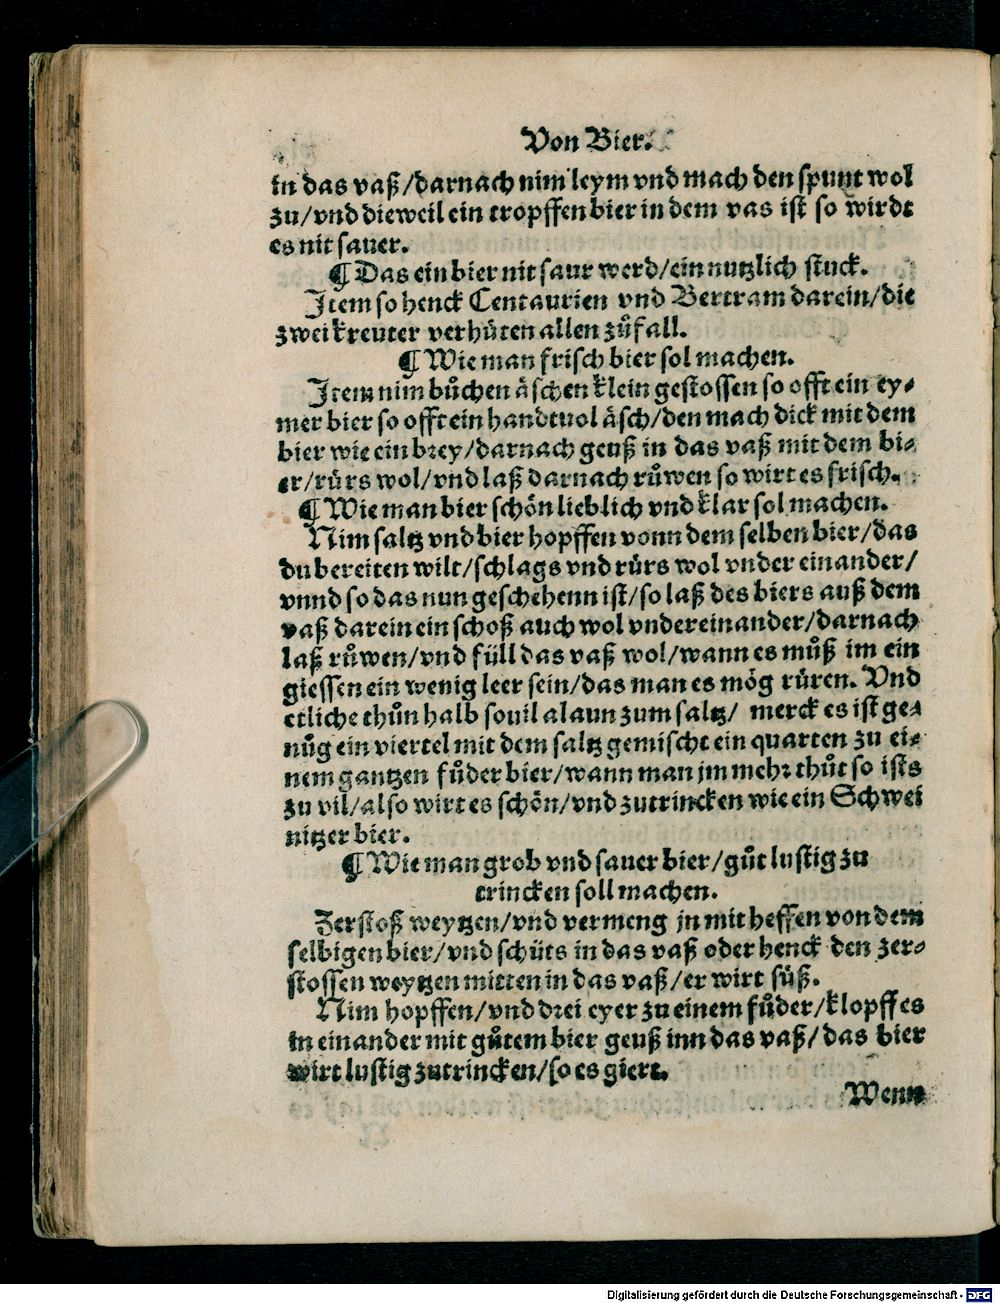 Von Bier.
in das vaß/darnach nim leym vnd mach den spunt wol
zu/vnd dieweil ein tropffen bier in dem vas ist so wirdt
es nit sauer.
¶ Das ein bier nit saur werd/ein nutzlich stuck.
Item so henck Centaurien vnd Bertram darein/die
zwei kreuter verhüten allen zůfall.
¶ Wie man frisch bier sol machen.
Item nim bůchen äschen klein gestossen so offt ein ey⸗
mer bier so offt ein handtuol äsch/den mach dick mit dem
bier wie ein brey/darnach geuß in das vaß mit dem bi⸗
er/rürs wol/vnd laß darnach růwen so wirt es frisch.
¶ Wie man bier schön lieblich vnd klar sol machen.
Nim saltz vnd bier hopffen vonn dem selben bier/das
du bereiten wilt/schlags vnd rürs wol vnder einander/
vnnd so das nun geschehenn ist/so laß des biers auß dem
vaß darein ein schoß auch wol vndereinander/darnach
laß růwen/vnd füll das vaß wol/wann es můß im ein
giessen ein wenig leer sein/das man es mög rüren. Vnd
etliche thůn halb souil alaun zum saltz/ merck es ist ge⸗
nůg ein viertel mit dem saltz gemischt ein quarten zu ei⸗
nem gantzen fůder bier/wann man jm mehr thůt so ists
zu vil/also wirt es schön/vnd zutrincken wie ein Schwei
nitzer bier.
¶ Wie man grob vnd sauer bier/gůt lustig zu
trincken soll machen.
Zerstoß weytzen/vnd vermeng jn mit heffen von dem
selbigen bier/vnd schüts in das vaß oder henck den zer⸗
stossen weytzen mitten in das vaß/er wirt süß.
Nim hopffen/vnd drei eyer zu einem fůder/klopff es
in einander mit gůtem bier geuß inn das vaß/das bier
wirt lustig zutrincken/so es giert.
Wenn
Digitalisierung gefördert durch die Deutsche Forschungsgemeinschaft - DFG